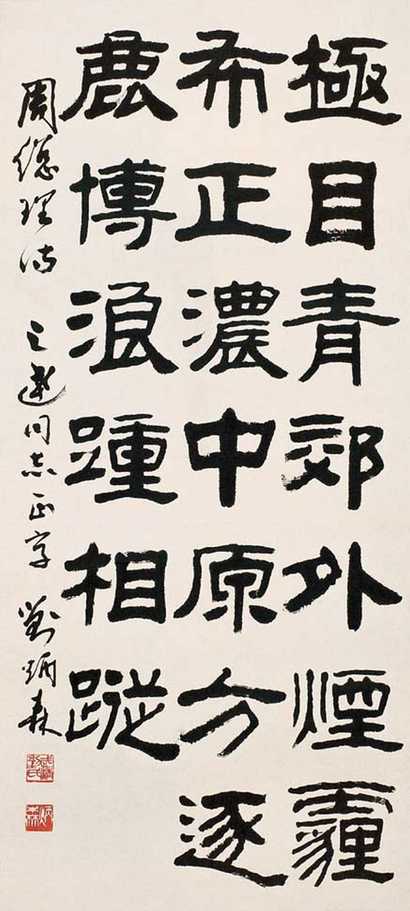 極目青郊外煙霾
布正濃中原方逐
鹿博浪踵相蹤
周總理詩 之同志正字 劉炳森
武清劉氏
炳森